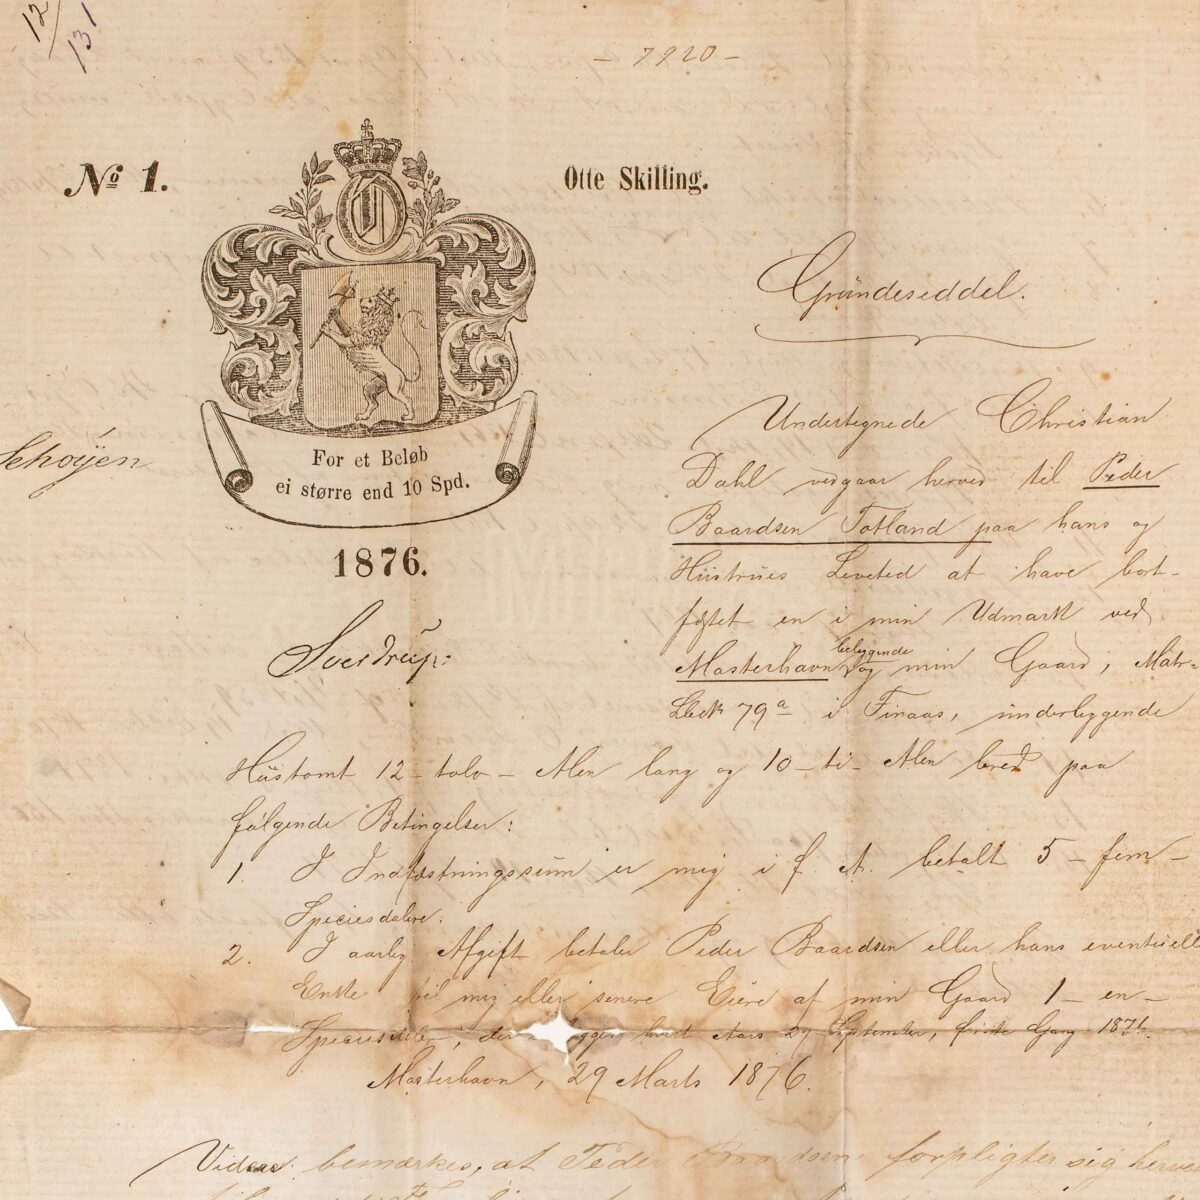 12/
131
- 7920 -
No 1.
Otte Skilling.
Grundeseddel.
Schøyen
For et Beløb
ei større end 10 Spd.
1876.
Sverdrup.
Undertegnede Christian
Dahl vedgaar herved til Peder
Baardsen Totland paa hans og
Hustrues Levetid at have bort-
fæstet en i min Udmark ved
Mosterhavn beliggende og min Gaard, Matr-
79a i Finaas, underliggende
Hustomt 12 - tolv - Alen lang og 10 - ti - Alen bred paa
følgende Betingelser:
1. I Indfæstningssum er mig i f. A. betalt 5 - fem -
Speciesdalere.
2. I aarlig Afgift betaler Peder Baardsen eller hans eventuelle
Enke til mig eller senere Eiere af min Gaard 1 - en -
Speciesdaler, der hvert Aars 29 September, første Gang 1876.
Mosterhavn, 29 Marts 1876.
Videre bemærkes, at Peder Baardsen forpligter sig herved